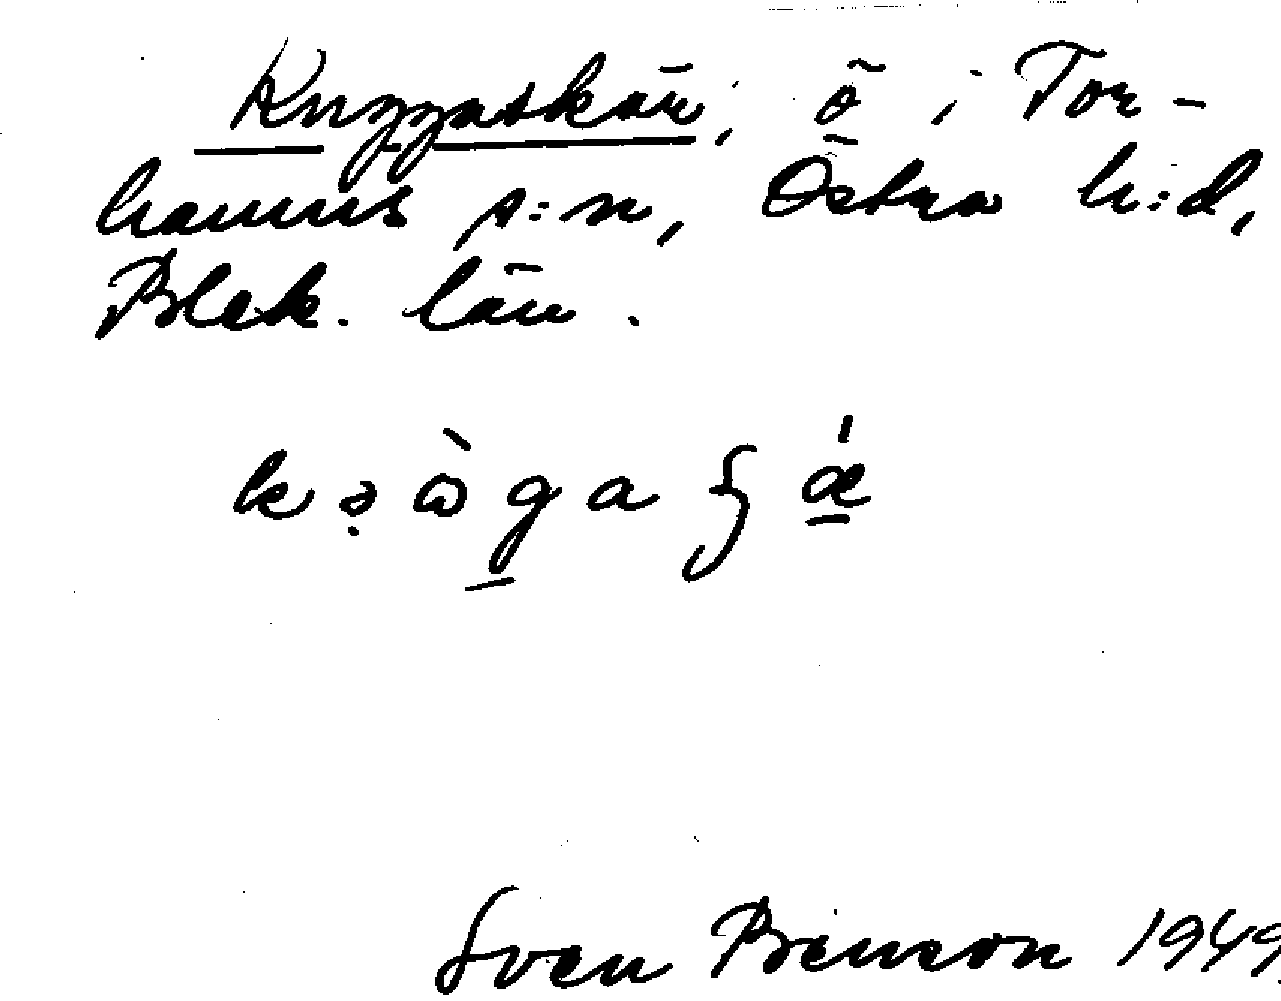 Kruggaskär, ö i Tor-
hamns s:n, Östra h:d,
Blek. län.
Sven Benson 1949